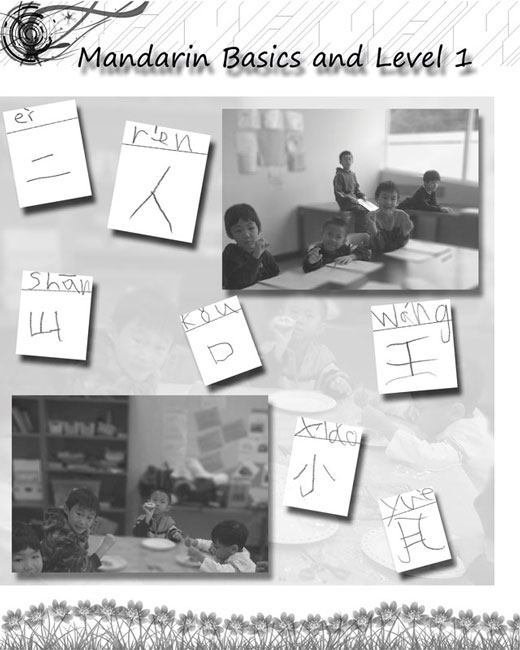 Mandarin Basics and Level 1
èr
二
rién
人
shān
山
kǒu
口
wáng
王
xiǎo
小
yuè
月